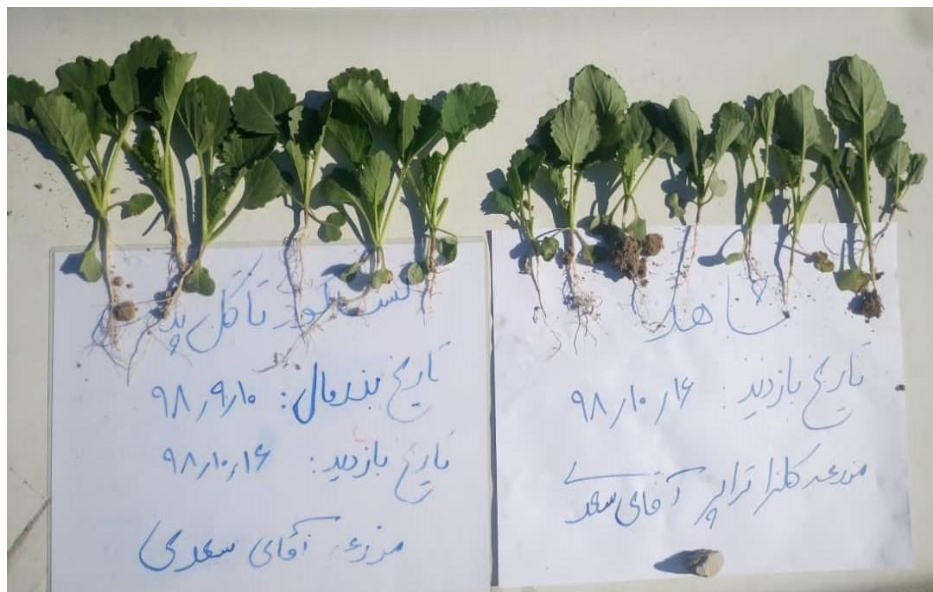 تا گل
تاریخ بذرمال: ۹۸٫۹٫۱۰
تاریخ بازدید: ۹۸٫۱۰٫۱۶
مزرعه آقای سعدی
شاهد
تاریخ بازدید: ۹۸٫۱۰٫۱۶
مزرعه کلزا تراپر آقای سعدی